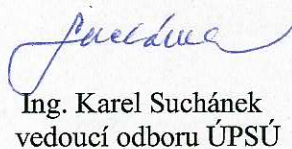 Ing. Karel Suchánek
vedoucí odboru ÚPSÚ